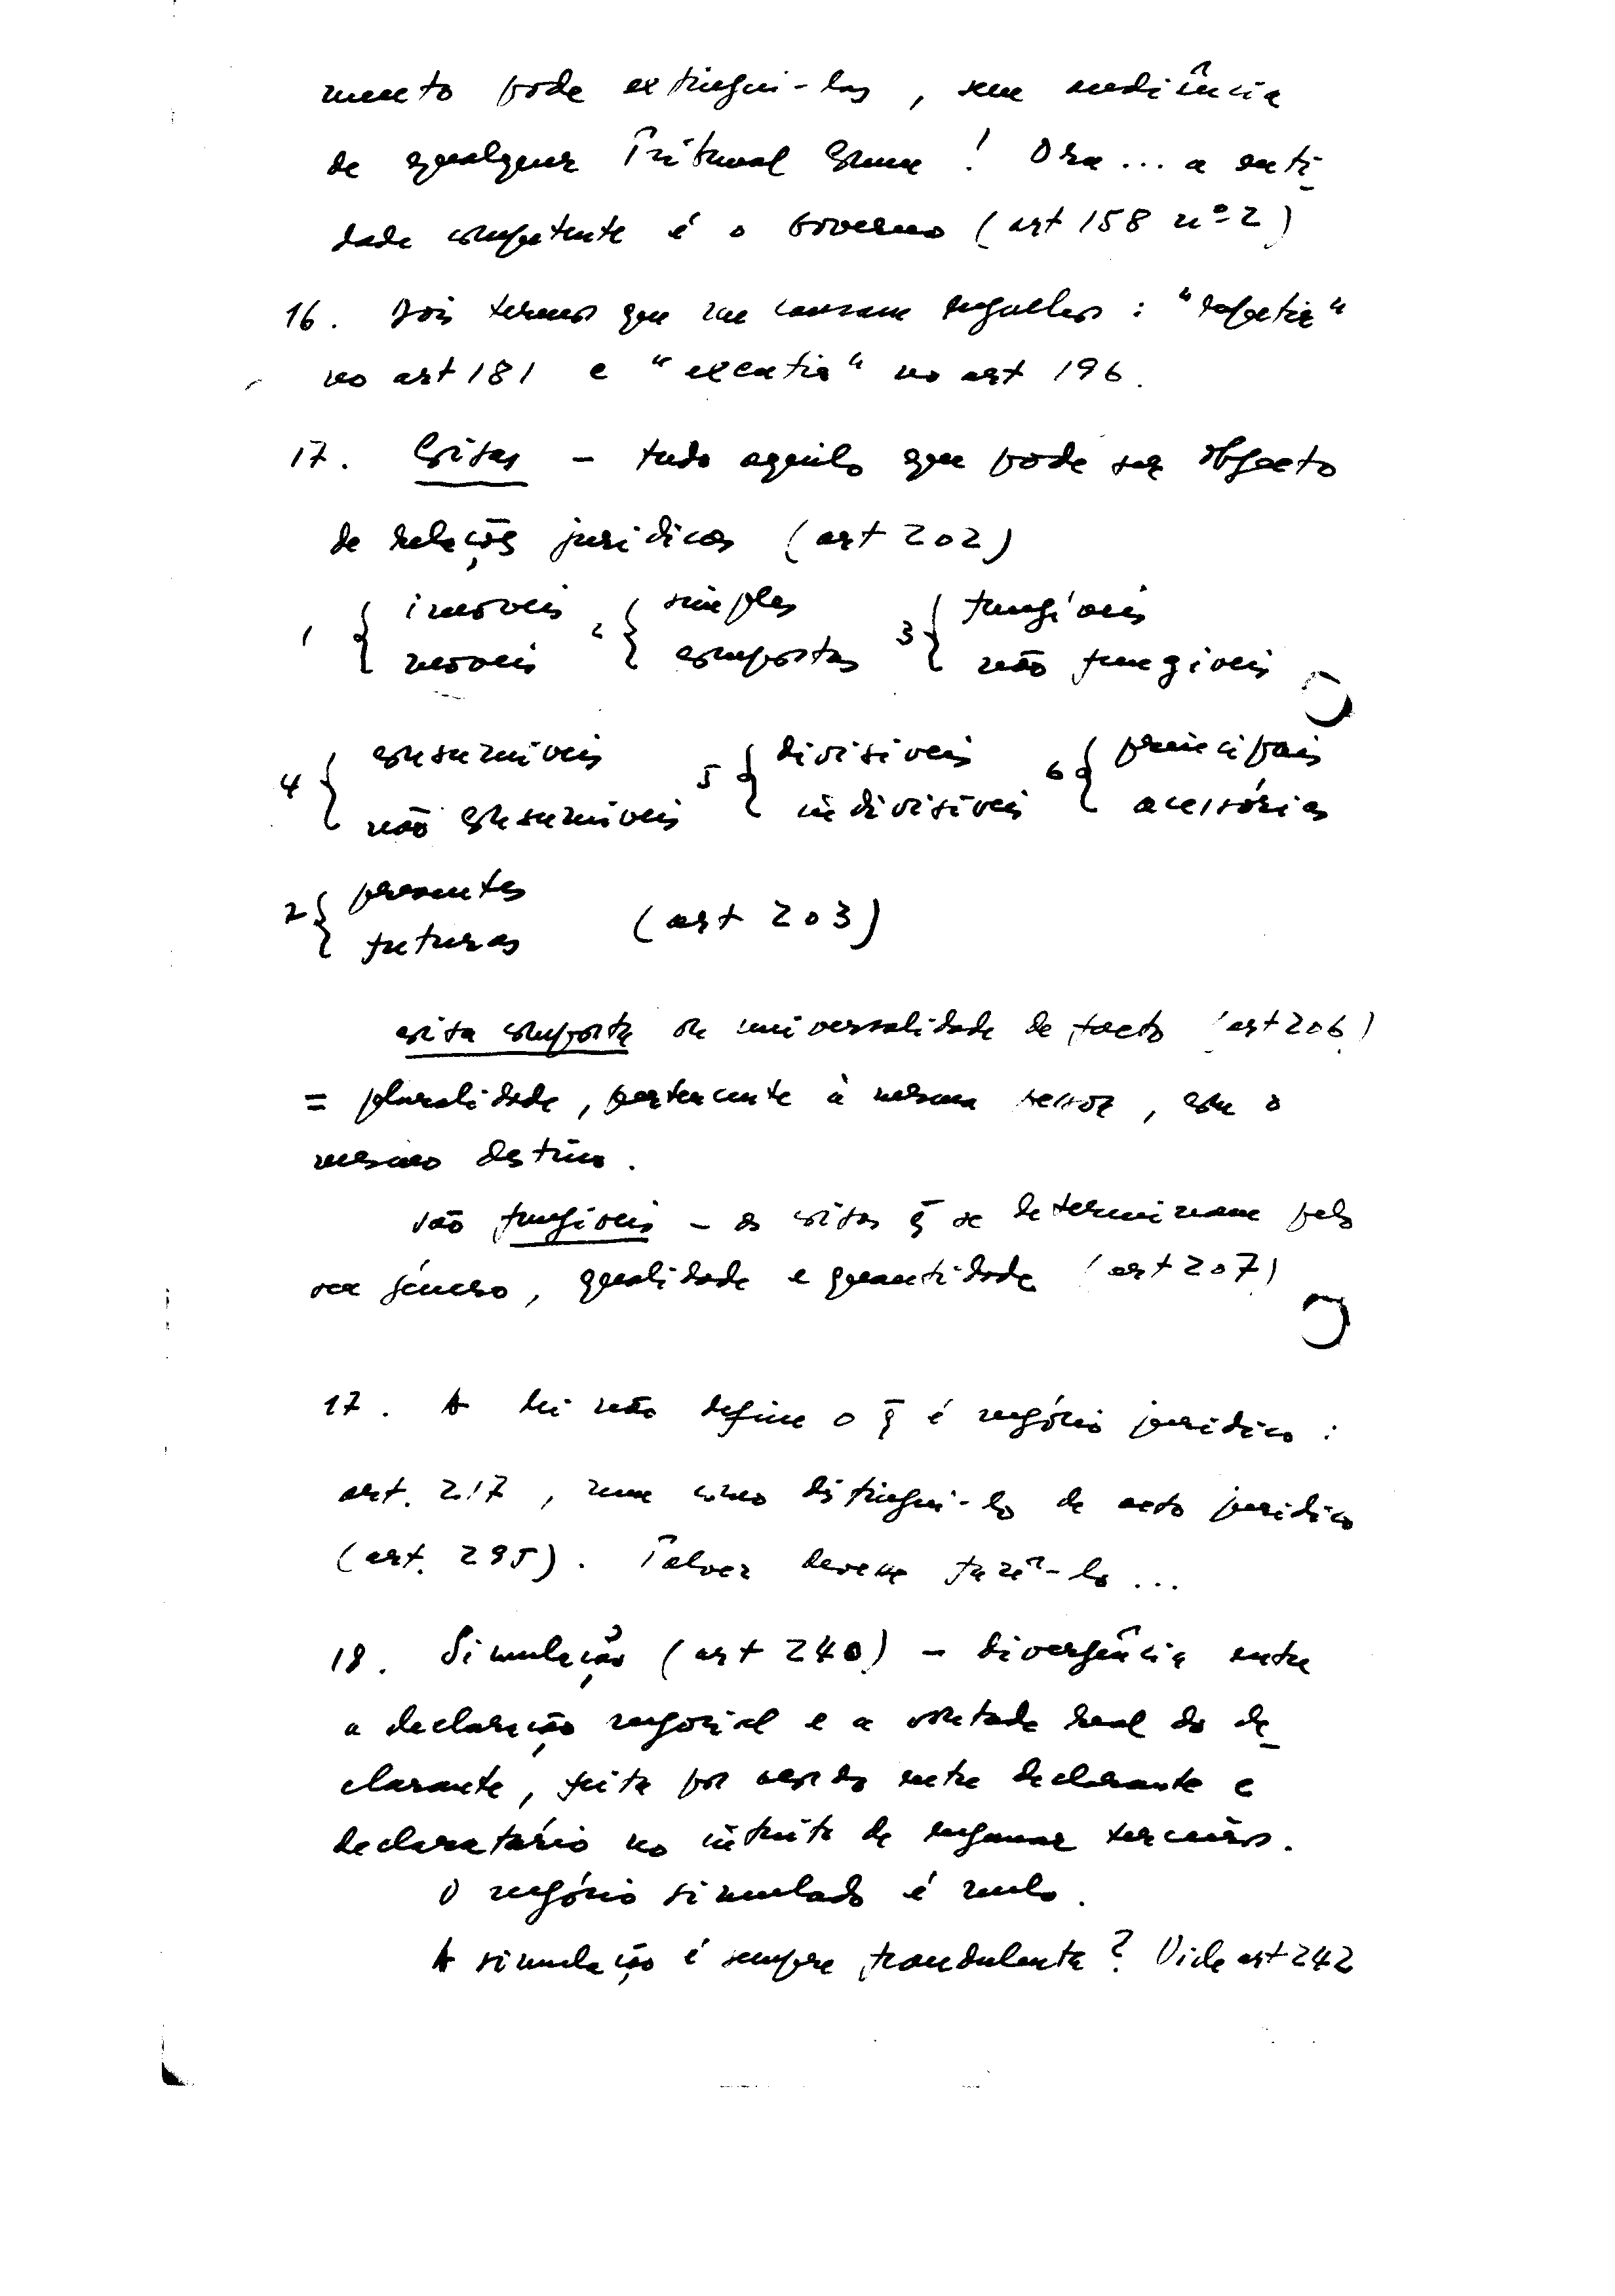 mento pode extingui-las, sem audiência
de qualquer Tribunal Comum! Ora... a enti-
dade competente é o Governo (art 158 nº 2)
16. Dois termos que me causam engulhos: "repetir"
no art 181 e "excutir" no art 196.
17. Coisas - tudo aquilo que pode ser objecto
de relações juridicas (art 202)
1 { imoveis 2 { simples 3 { fungíveis
moveis compostas não fungiveis
4 { consumíveis 5 { divisíveis 6 { principais
não consumíveis indivisíveis acessórias
7 { presentes
futuras (art 203)
coisa composta ou universalidade de facto (art 206)
= pluralidade, pertencente à mesma pessoa, com o
mesmo destino.
São fungíveis - as coisas q̄ se determinam pelo
seu género, qualidade e quantidade (art 207)
17. A lei não define o q̄ é negócio juridico:
art. 217, nem como distingui-lo de acto juridico
(art. 295). Talvez devesse fazê-lo...
18. Simulação (art 240) - divergência entre
a declaração negocial e a vontade real do de-
clarante, feita por acordo entre declarante e
declaratário no intuito de enganar terceiros.
O negócio simulado é nulo.
A simulação é sempre fraudulenta? Vide art 242